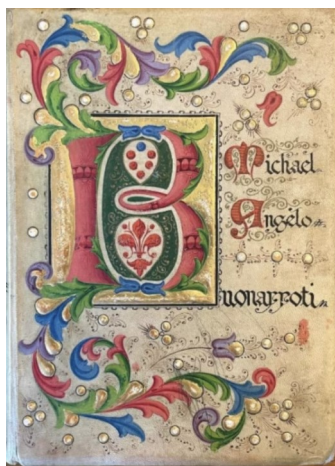 Michael
Angelo
Buonarroti